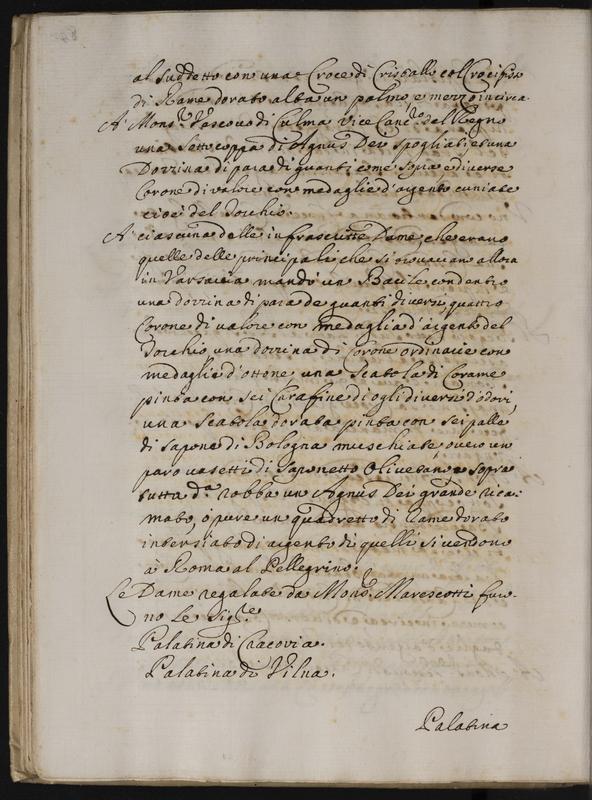 al suddetto con una Croce di Cristallo col Crocifisso
di Rame dorato alta un palmo e mezzo incirca.
A Mons.r Vescovo di Culma Vice Canc.re del Regno
una sottocoppa di Agnus Dei spogliati, et una
Dozzina di para di guanti come sopra e diverse
Corone di valore con medaglie d'argento cuniate
cioè del Torchio.
A ciascuna delle infrascritte Dame che erano
quelle delle principali che si trovavano allora
in Varsavia mandò un Bacile con dentro
una dozzina di para de guanti diversi, quattro
Corone di valore con medaglia d'argento del
Torchio, una dozzina di Corone ordinarie con
medaglia d'ottone, una Scatola di Corame
pinta con sei Carafine di ogli diversi d'odori,
una Scatola dorata pinta con sei palle
di sapone di Bologna muschiate, overo un
paro vasetti di Saponetto Olivetano e sopra
tutta d.a robba un Agnus Dei grande rica-
mato, ò pure un quadretto di Rame dorato
intersiato di argento di quelli si vendono
à Roma al Pellegrino.
Le Dame regalate da Mons.r Marescotti furo-
no le Sig.re
Palatina di Cracovia.
Palatina di Vilna.
Palatina